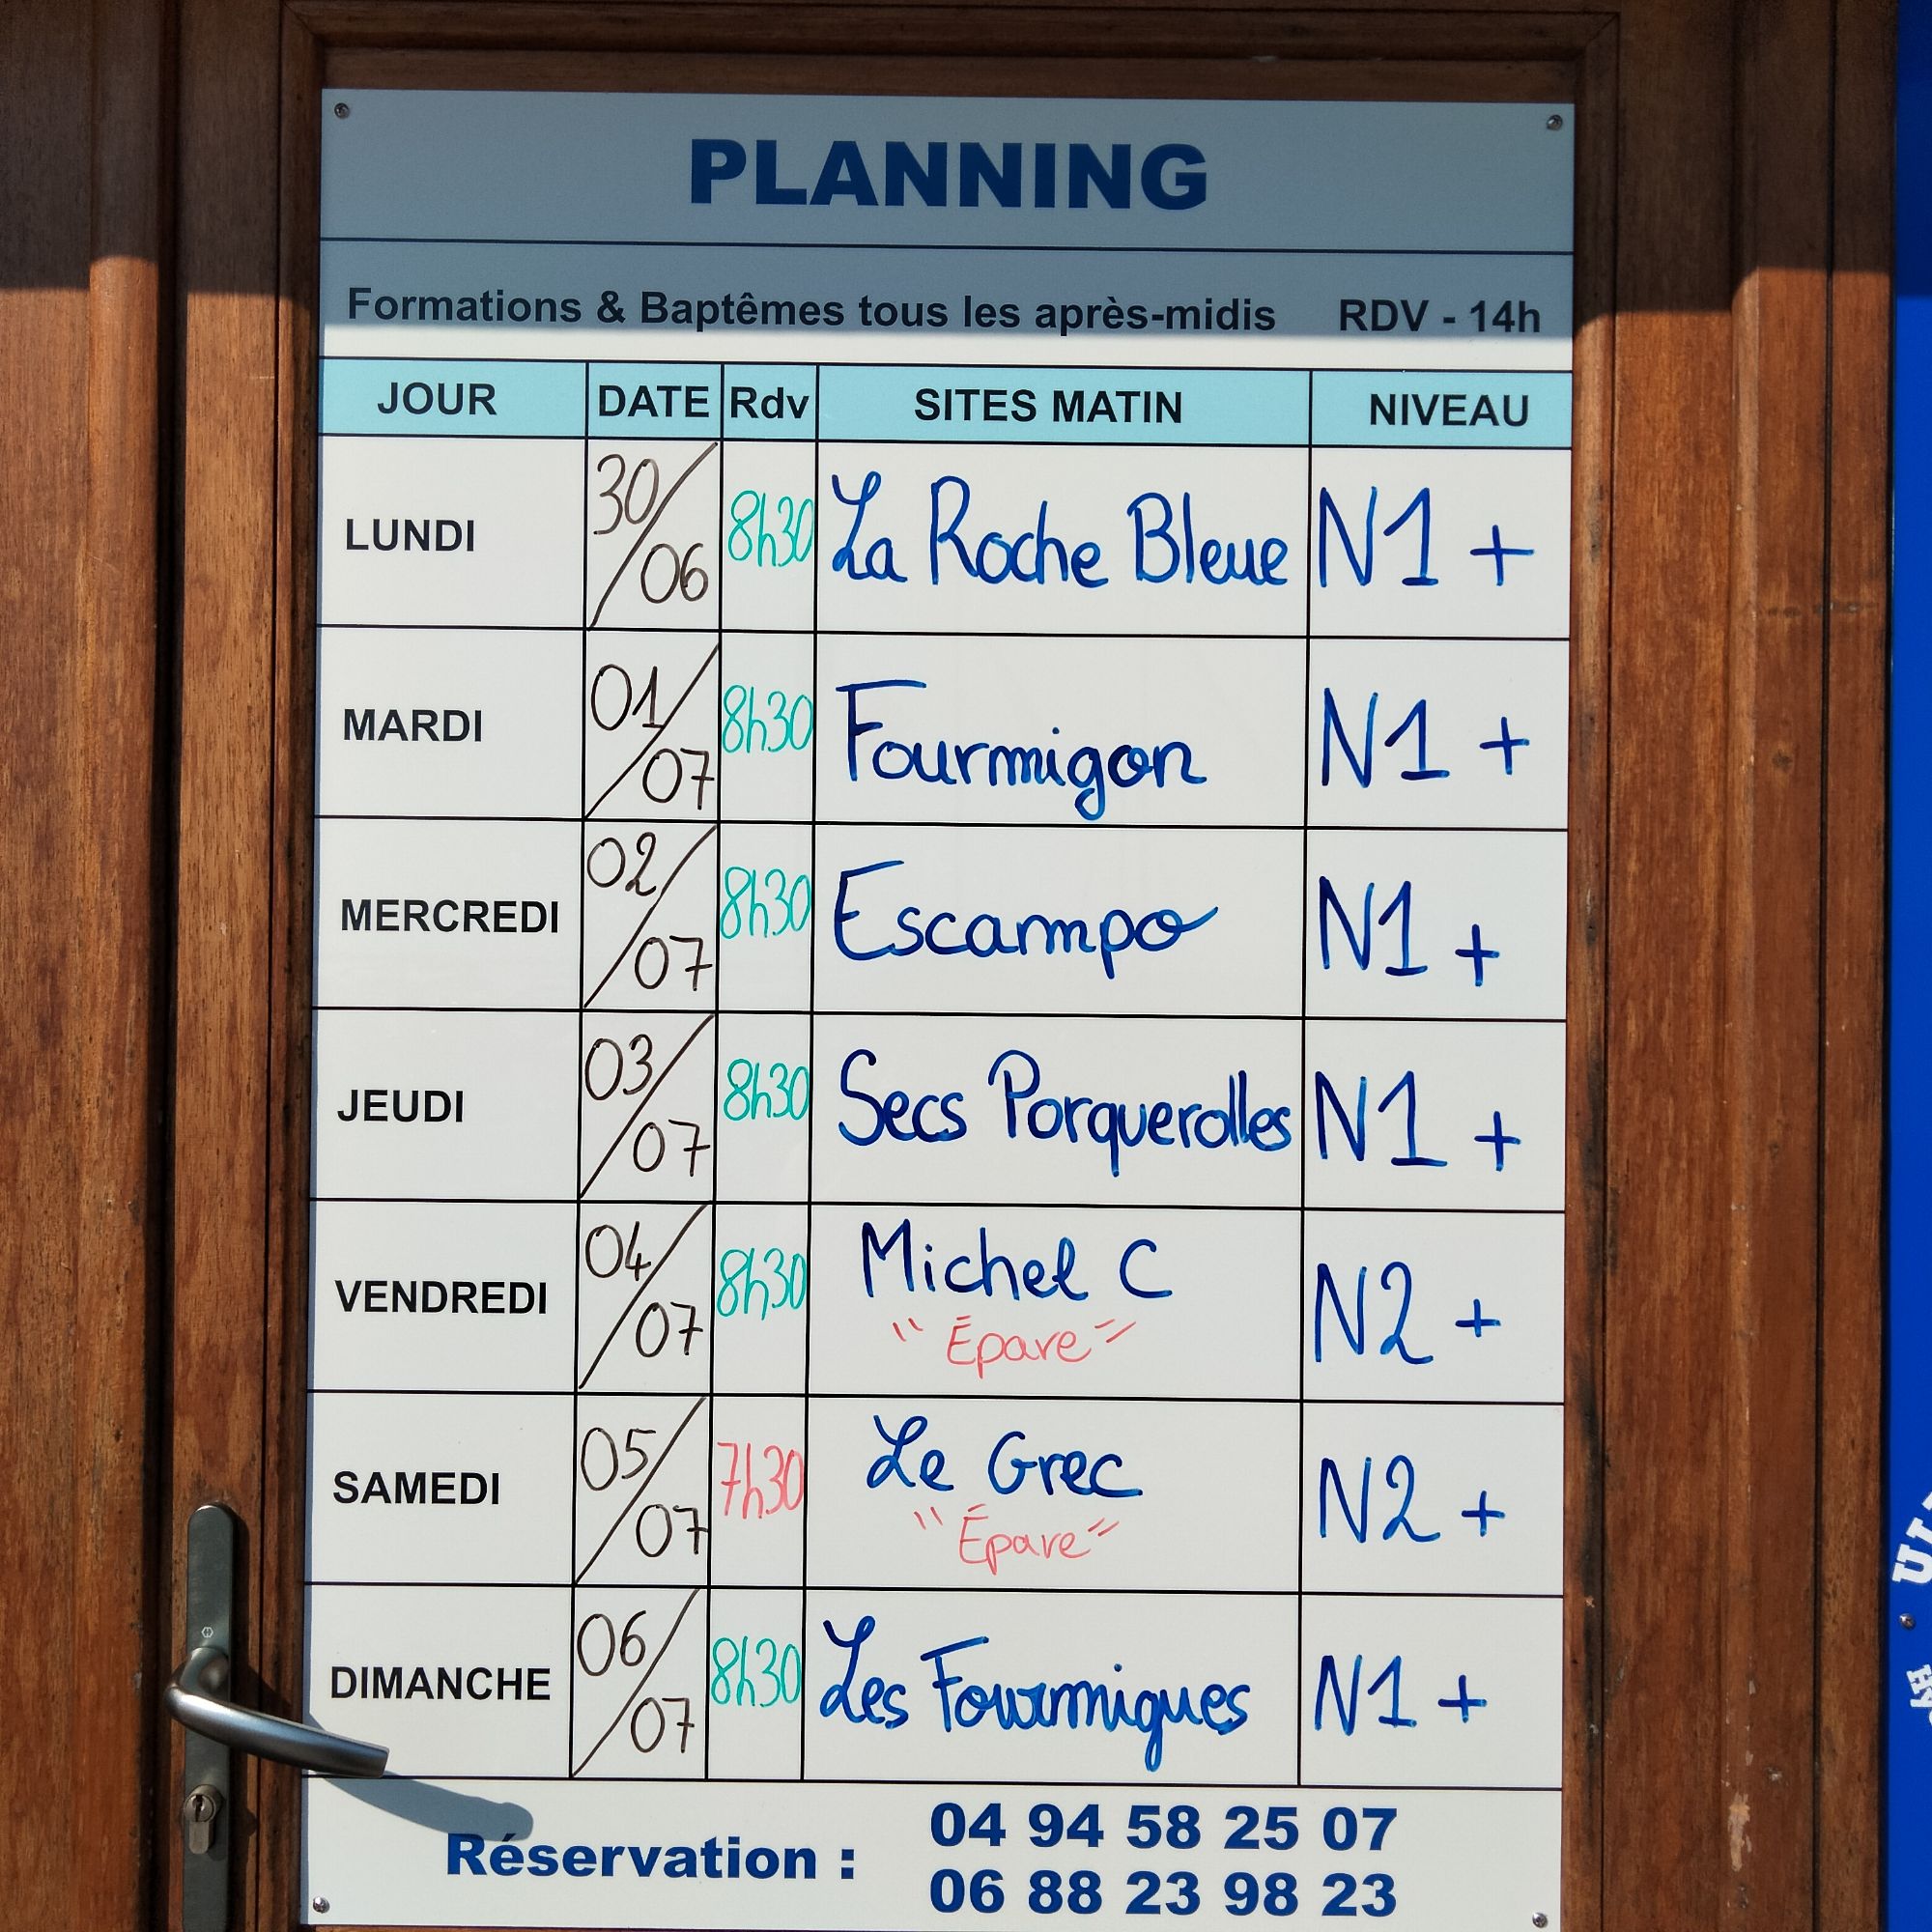 PLANNING
Formations & Baptêmes tous les après-midis RDV - 14h
JOUR DATE Rdv SITES MATIN NIVEAU
LUNDI 30/06 8h30 La Roche Bleue N1 +
MARDI 01/07 8h30 Fourmigon N1 +
MERCREDI 02/07 8h30 Escampo N1 +
JEUDI 03/07 8h30 Secs Porquerolles N1 +
VENDREDI 04/07 8h30 Michel C N2 +
"Épave"
SAMEDI 05/07 7h30 Le Grec N2 +
"Épave"
DIMANCHE 06/07 8h30 Les Fourmigues N1 +
Réservation : 04 94 58 25 07
06 88 23 98 23